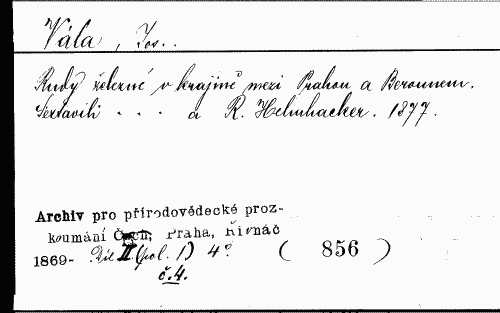 Vála, Jos..
Rudy železné v krajině mezi Prahou a Berounem.
Sestavili . . . a R. Helmhacker. 1877.
Archiv pro přírodovědecké proz-
koumání Čech, Praha, Řivnáč
1869- Díl II (pol. 1) 4° ( 856 )
č.4.